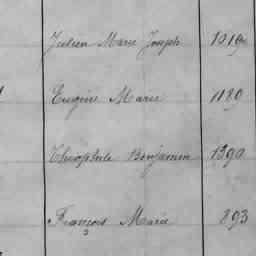 Julien Marie Joseph 1019
Eugène Marie 1189
Théophile Benjamin 1390
François Marie 893